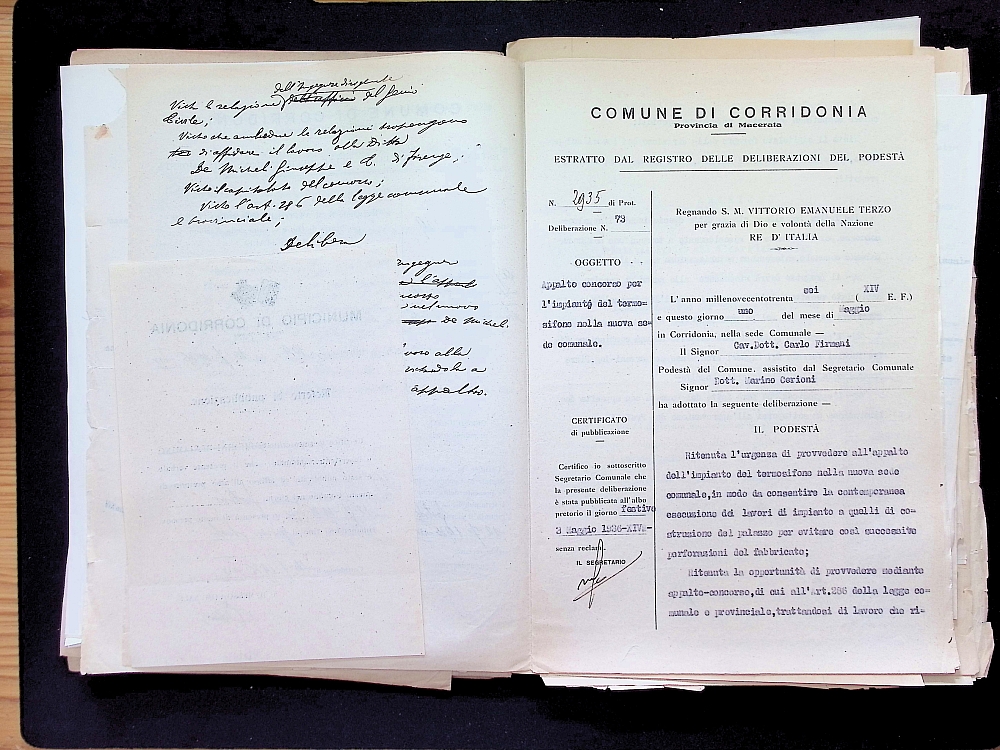 dell'Ingegnere dirigente
Vista la relazione dell'ufficio del Genio
Civile;
Visto che ambedue le relazioni propongono
di affidare il lavoro alla Ditta
De Micheli Giuseppe e C. di Firenze;
Visto il capitolato del concorso;
Visto l'art. 286 della legge comunale
e provinciale;
Delibera
ingegner
l'appalto
De Michel.
voro alla
appalto.
MUNICIPIO DI CORRIDONIA
COMUNE DI CORRIDONIA
Provincia di Macerata
ESTRATTO DAL REGISTRO DELLE DELIBERAZIONI DEL PODESTÀ
N. 2935 di Prot.
Deliberazione N. 73
OGGETTO
Appalto concorso per
l'impianto del termo=
sifone nella nuova se=
de comunale.
CERTIFICATO
di pubblicazione
Certifico io sottoscritto
Segretario Comunale che
la presente deliberazione
è stata pubblicata all'albo
pretorio il giorno festivo
3 Maggio 1936-XIV=-
senza reclami.
IL SEGRETARIO
Regnando S. M. VITTORIO EMANUELE TERZO
per grazia di Dio e volontà della Nazione
RE D'ITALIA
L'anno millenovecentotrenta sei ( XIV E. F.)
e questo giorno uno del mese di Maggio
in Corridonia, nella sede Comunale —
Il Signor Cav.Dott. Carlo Firmani
Podestà del Comune, assistito dal Segretario Comunale
Signor Dott. Marino Cerioni
ha adottato la seguente deliberazione —
IL PODESTÀ
Ritenuta l'urgenza di provvedere all'appalto
dell'impianto del termosifone nella nuova sede
comunale,in modo da consentire la contemporanea
esecuzione dei lavori di impianto a quelli di co=
struzione del palazzo per evitare così successive
perforazioni del fabbricato;
Ritenuta la opportunità di provvedere mediante
appalto-concorso,di cui all'Art.286 della legge co=
munale e provinciale,trattandosi di lavoro che ri=